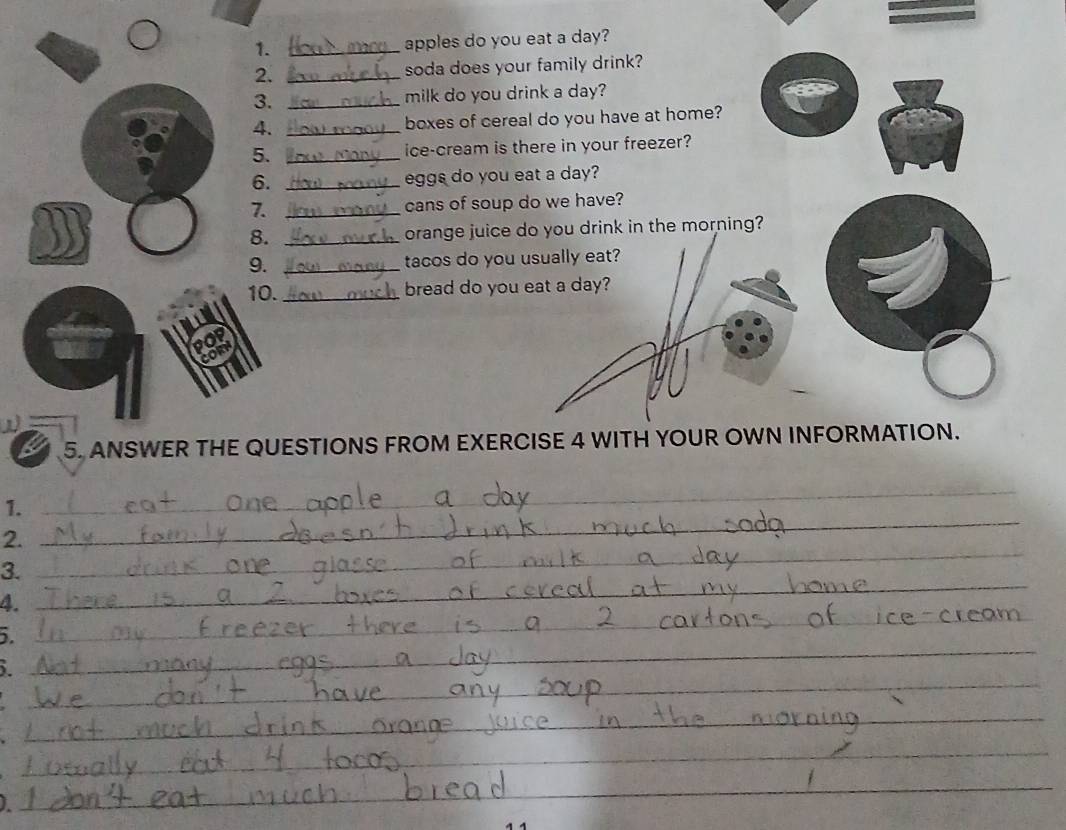 1. How many apples do you eat a day?
2. How much soda does your family drink?
3. How much milk do you drink a day?
4. How many boxes of cereal do you have at home?
5. How many ice-cream is there in your freezer?
6. How many eggs do you eat a day?
7. How many cans of soup do we have?
8. How much orange juice do you drink in the morning?
9. How many tacos do you usually eat?
10. How much bread do you eat a day?
POP
CORN
5. ANSWER THE QUESTIONS FROM EXERCISE 4 WITH YOUR OWN INFORMATION.
1. I eat one apple a day
2. My family doesn't drink much soda
3. drink one glasse of milk a day
4. There is a 2 boxes of cereal at my home
5. In my freezer there is a 2 cartons of ice-cream
6. Not many eggs a day
We don't have any soup
I not much drink orange juice in the morning
I usually eat 4 tacos
I don't eat much bread